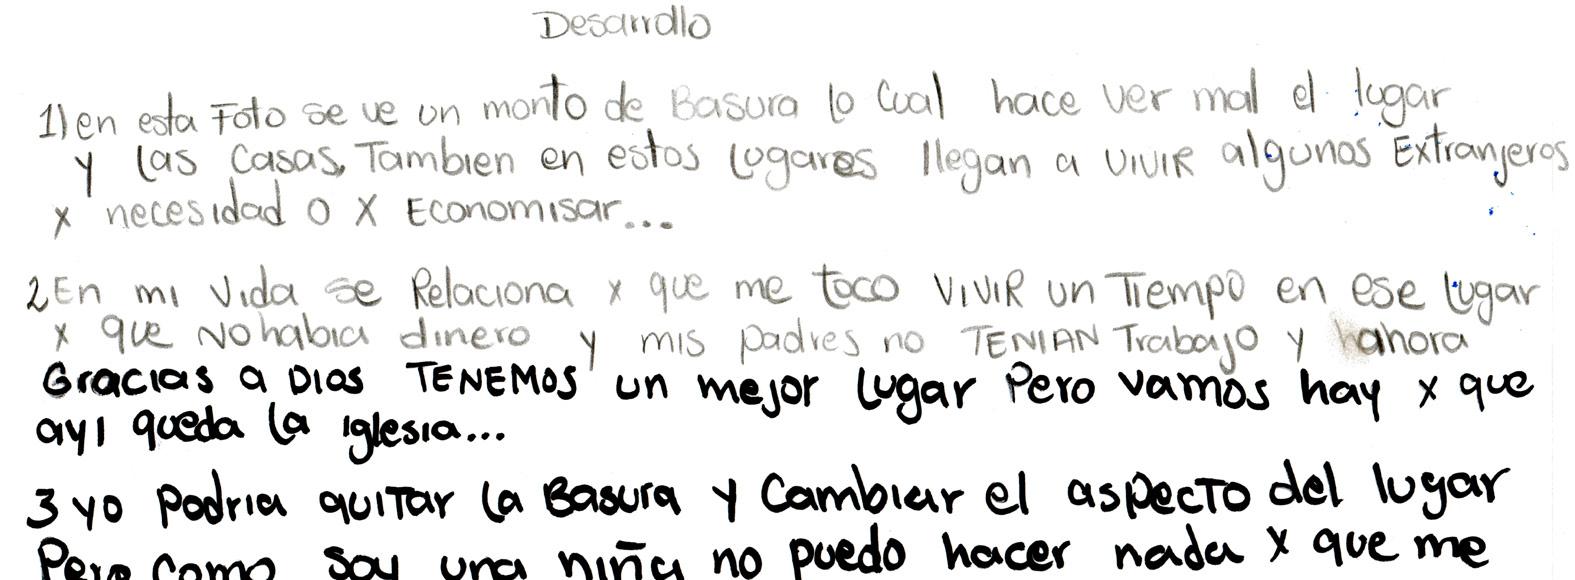 Desarrollo
1) en esta Foto se ve un monto de Basura lo Cual hace ver mal el lugar
y las Casas, Tambien en estos lugares llegan a VIVIR algunos Extranjeros
x necesidad o X Economisar...
2 En mi Vida se Relaciona x que me toco VIVIR un Tiempo en ese lugar
x que No habia dinero y mis padres no TENIAN Trabajo y hahora
Gracias a Dios TENEMOS un mejor lugar Pero vamos hay x que
ayi queda la iglesia...
3 yo Podria quiTar la Basura y Cambiar el aspecTo del lugar
Pero como soy una niña no puedo hacer nada x que me